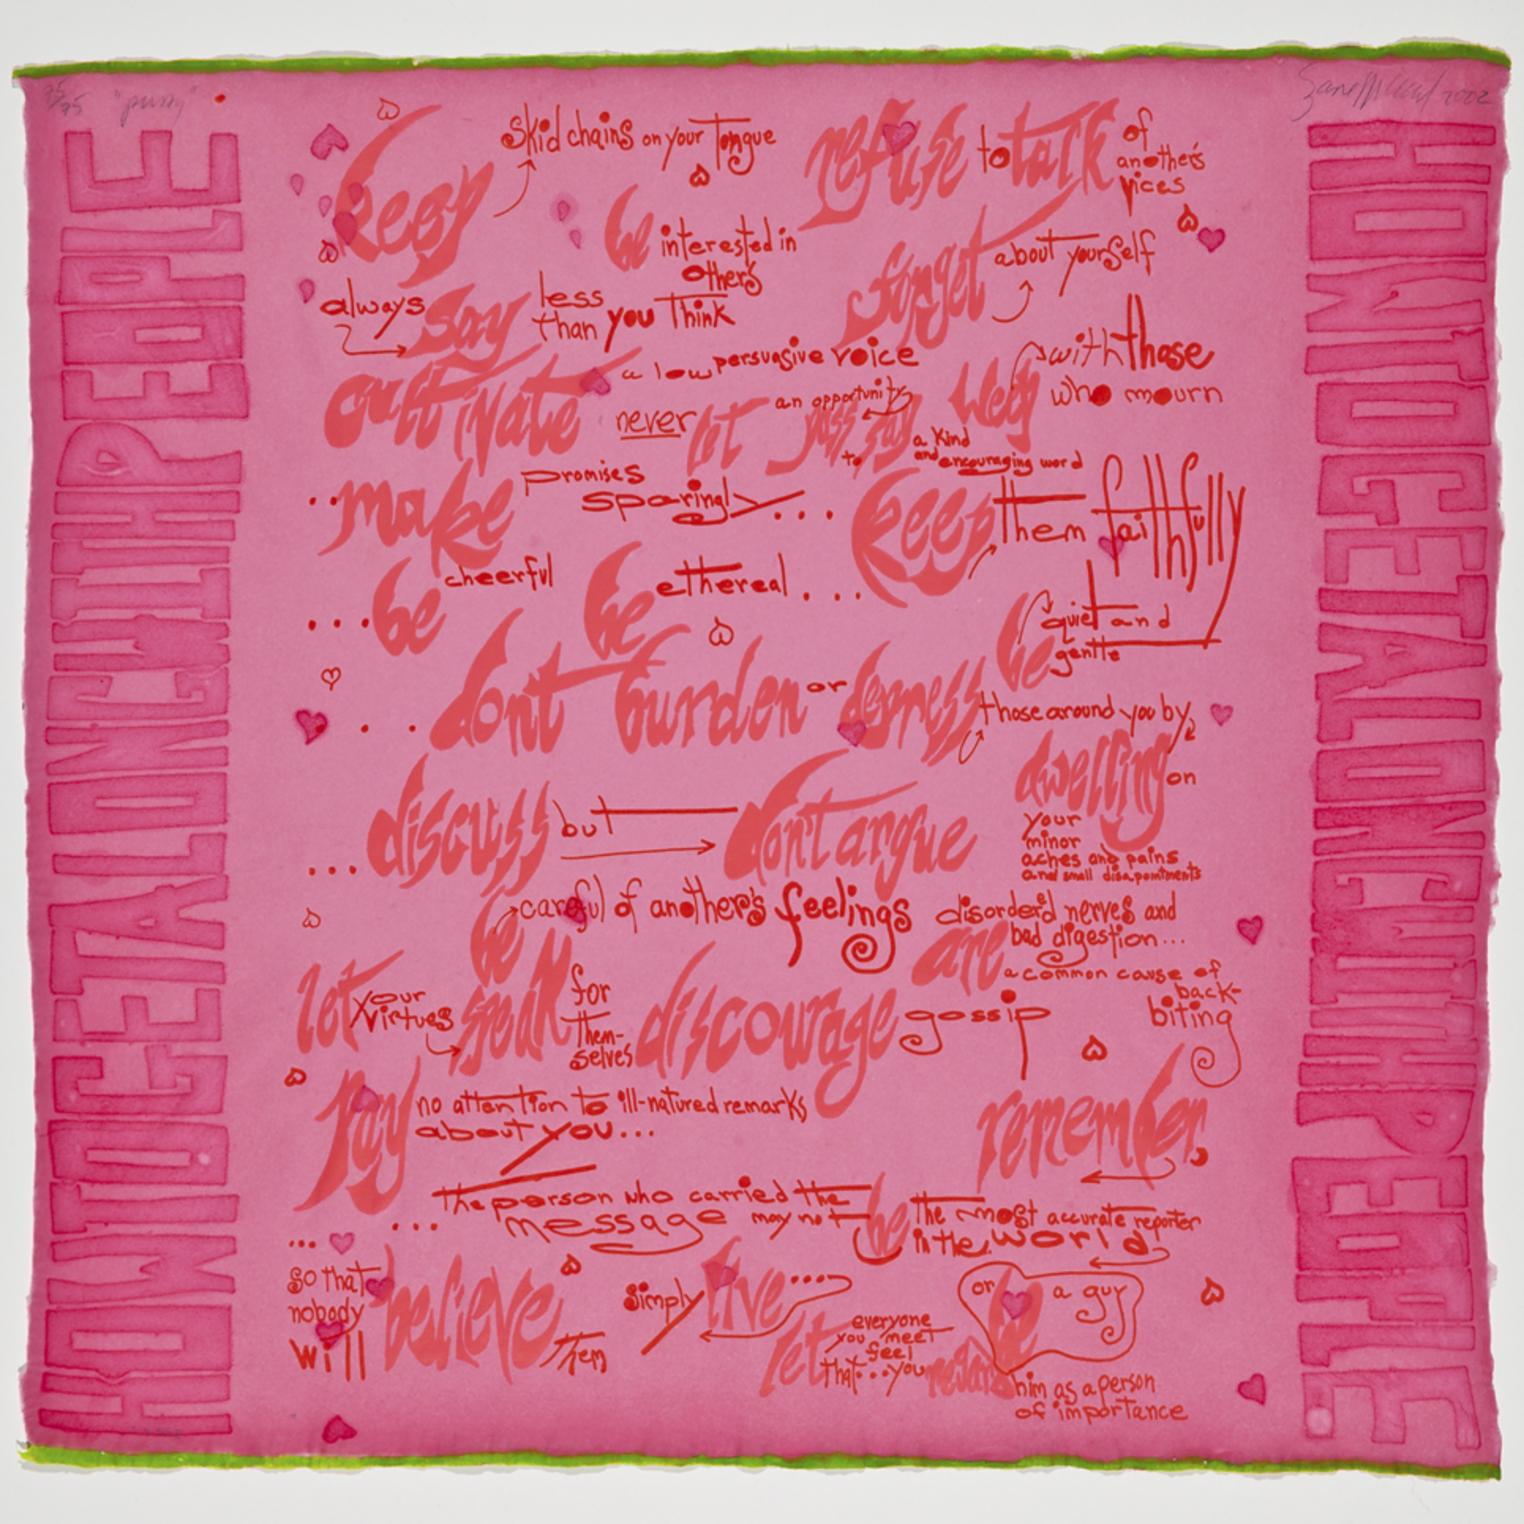 "pussy"
2002
HOW TO GET ALONG WITH PEOPLE
HOW TO GET ALONG WITH PEOPLE
keep skid chains on your Tongue
refuse to talk of another's vices
be interested in others
forget about yourself
always say less than you Think
cultivate a low persuasive voice
weep with those who mourn
never let an opportunity pass to say a kind and encouraging word
..make promises sparingly...
keep them faithfully
...be cheerful
be ethereal...
be quiet and gentle
..dont burden or depress those around you by
dwelling on your minor aches and pains and small disapointments
...discuss but don't argue
be careful of another's feelings
disorderd nerves and bad digestion...
are a common cause of back-biting
let your virtues speak for them-selves
discourage gossip
pay no attention to ill-natured remarks about you...
remember,
...the person who carried the message may not be the most accurate reporter in the world
...
so that nobody will believe them
simply live....
or be a guy
let everyone you meet feel that...you regard him as a person of importance